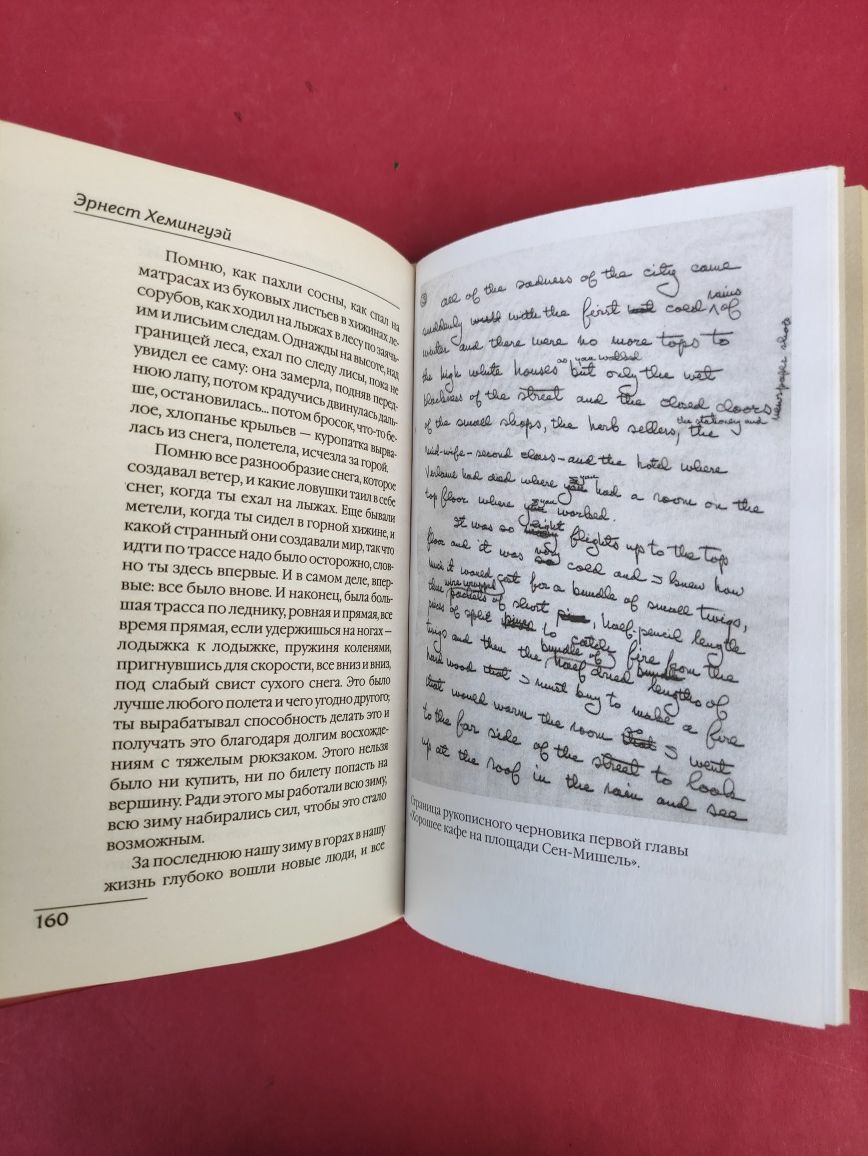 Эрнест Хемингуэй
Помню, как пахли сосны, как спал на
матрасах из буковых листьев в хижинах ле-
сорубов, как ходил на лыжах в лесу по заячь-
им и лисьим следам. Однажды на высоте, над
границей леса, ехал по следу лисы, пока не
увидел ее саму: она замерла, подняв перед-
нюю лапу, потом крадучись двинулась даль-
ше, остановилась... потом бросок, что-то бе-
лое, хлопанье крыльев — куропатка вырва-
лась из снега, полетела, исчезла за горой.
Помню все разнообразие снега, которое
создавал ветер, и какие ловушки таил в себе
снег, когда ты ехал на лыжах. Еще бывали
метели, когда ты сидел в горной хижине, и
какой странный они создавали мир, так что
идти по трассе надо было осторожно, слов-
но ты здесь впервые. И в самом деле, впер-
вые: все было внове. И наконец, была боль-
шая трасса по леднику, ровная и прямая, все
время прямая, если удержишься на ногах —
лодыжка к лодыжке, пружиня коленями,
пригнувшись для скорости, все вниз и вниз,
под слабый свист сухого снега. Это было
лучше любого полета и чего угодно другого;
ты вырабатывал способность делать это и
получать это благодаря долгим восхожде-
ниям с тяжелым рюкзаком. Этого нельзя
было ни купить, ни по билету попасть на
вершину. Ради этого мы работали всю зиму,
всю зиму набирались сил, чтобы это стало
возможным.
За последнюю нашу зиму в горах в нашу
жизнь глубоко вошли новые люди, и все
160
all of the sadness of the city came
suddenly with the first cold rains of
winter and there were no more tops to
the high white houses as you walked but only the wet
blackness of the street and the closed doors
of the small shops, the herb sellers, the stationery and newspaper shops
mid-wife - second class - and the hotel where
Verlaine had died where you had a room on the
top floor where you worked.
It was eight flights up to the top
floor and it was very cold and I knew how
much it would cost for a bundle of small twigs,
three wire wrapped packets of short, half-pencil length
pieces of split to catch fire from the
twigs and then the bundle of half dried lengths of
hard wood that I must buy to make a fire
that would warm the room so I went
to the far side of the street to look
up at the roof in the rain and see
Страница рукописного черновика первой главы
«Хорошее кафе на площади Сен-Мишель».